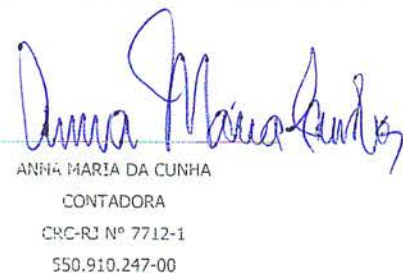 Anna Maria Cunha
ANNA MARIA DA CUNHA
CONTADORA
CRC-RJ Nº 7712-1
550.910.247-00